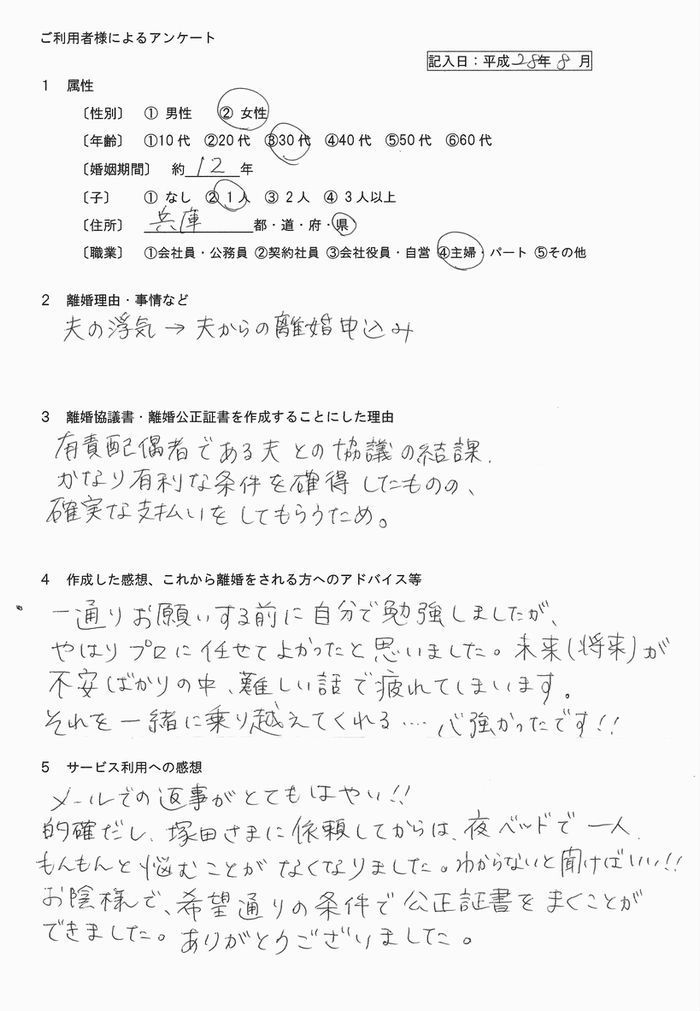 ご利用者様によるアンケート
記入日：平成28年8月
1 属性
〔性別〕 ① 男性 ② 女性
〔年齢〕 ①10代 ②20代 ③30代 ④40代 ⑤50代 ⑥60代
〔婚姻期間〕 約12年
〔子〕 ① なし ② 1人 ③ 2人 ④ 3人以上
〔住所〕 兵庫 都・道・府・県
〔職業〕 ①会社員・公務員 ②契約社員 ③会社役員・自営 ④主婦・パート ⑤その他
2 離婚理由・事情など
夫の浮気→夫からの離婚申込み
3 離婚協議書・離婚公正証書を作成することにした理由
有責配偶者である夫との協議の結課、
かなり有利な条件を確得したものの、
確実な支払いをしてもらうため。
4 作成した感想、これから離婚をされる方へのアドバイス等
一通りお願いする前に自分で勉強しましたが、
やはりプロに任せてよかったと思いました。未来(将来)が
不安ばかりの中、難しい話で疲れてしまいます。
それを一緒に乗り越えてくれる‥‥心強かったです!!
5 サービス利用への感想
メールでの返事がとてもはやい!!
的確だし、塚田さまに依頼してからは、夜ベッドで一人、
もんもんと悩むことがなくなりました。わからないと聞けばいい!!
お陰様で、希望通りの条件で公正証書をまくことが
できました。ありがとうございました。